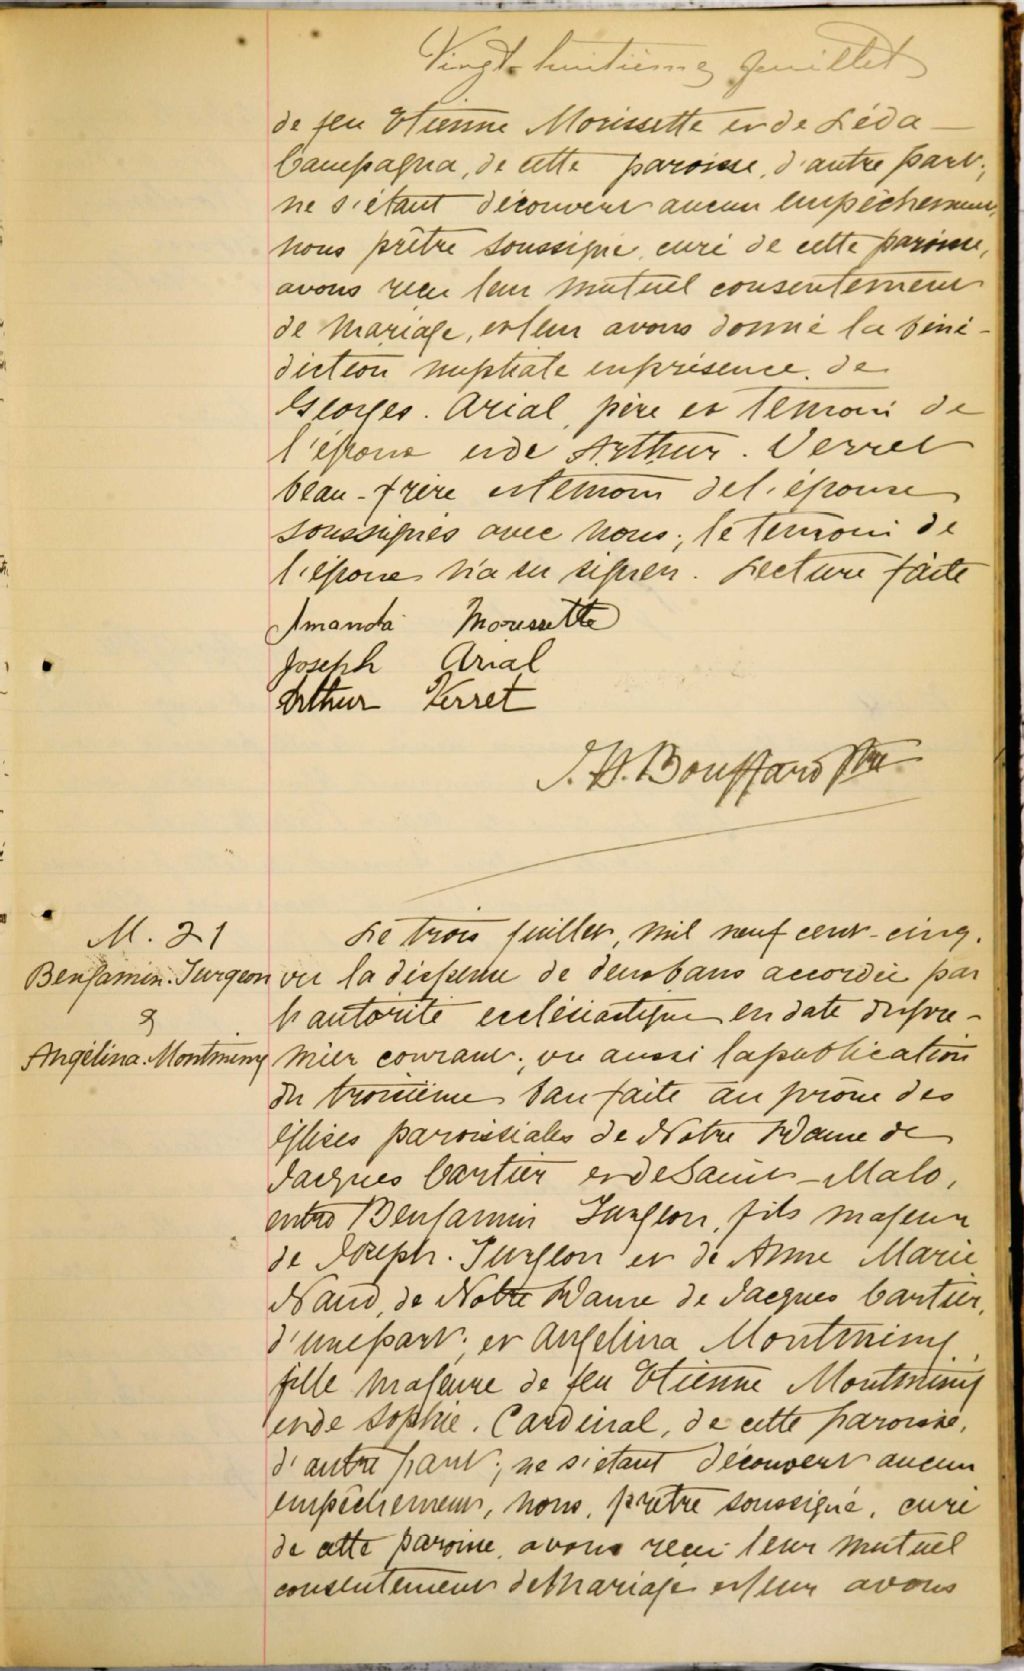 Vingt-huitième feuillet
de feu Etienne Morissette et de Léda
Campagna, de cette paroisse, d'autre part;
ne s'étant découvert aucun empêchement,
nous prêtre soussigné, curé de cette paroisse,
avons reçu leur mutuel consentement
de mariage, et leur avons donné la béné-
diction nuptiale en présence de
Georges. Arial, père et témoin de
l'époux et de Arthur. Verret
beau-frère et témoin de l'épouse
soussignés avec nous; le témoin de
l'époux n'a su signer. Lecture faite
Amanda Morissette
Joseph Arial
Arthur Verret
J. H. Bouffard Ptre
M. 21
Benjamin. Turgeon
&
Angélina. Montminy
Le trois juillet, mil neuf cent-cinq.
vu la dispense de deux bans accordée par
l'autorité ecclésiastique en date du pre-
mier courant; vu aussi la publication
du troisième ban faite au prône des
églises paroissiales de Notre Dame de
Jacques Cartier et de Saint-Malo,
entre Benjamin Turgeon, fils majeur
de Joseph. Turgeon et de Anne Marie
Naud, de Notre Dame de Jacques Cartier,
d'une part; et Angelina Montminy,
fille majeure de feu Etienne Montminy
et de Sophie. Cardinal, de cette paroisse,
d'autre part; ne s'étant découvert aucun
empêchement, nous, prêtre soussigné, curé
de cette paroisse, avons reçu leur mutuel
consentement de mariage et leur avons